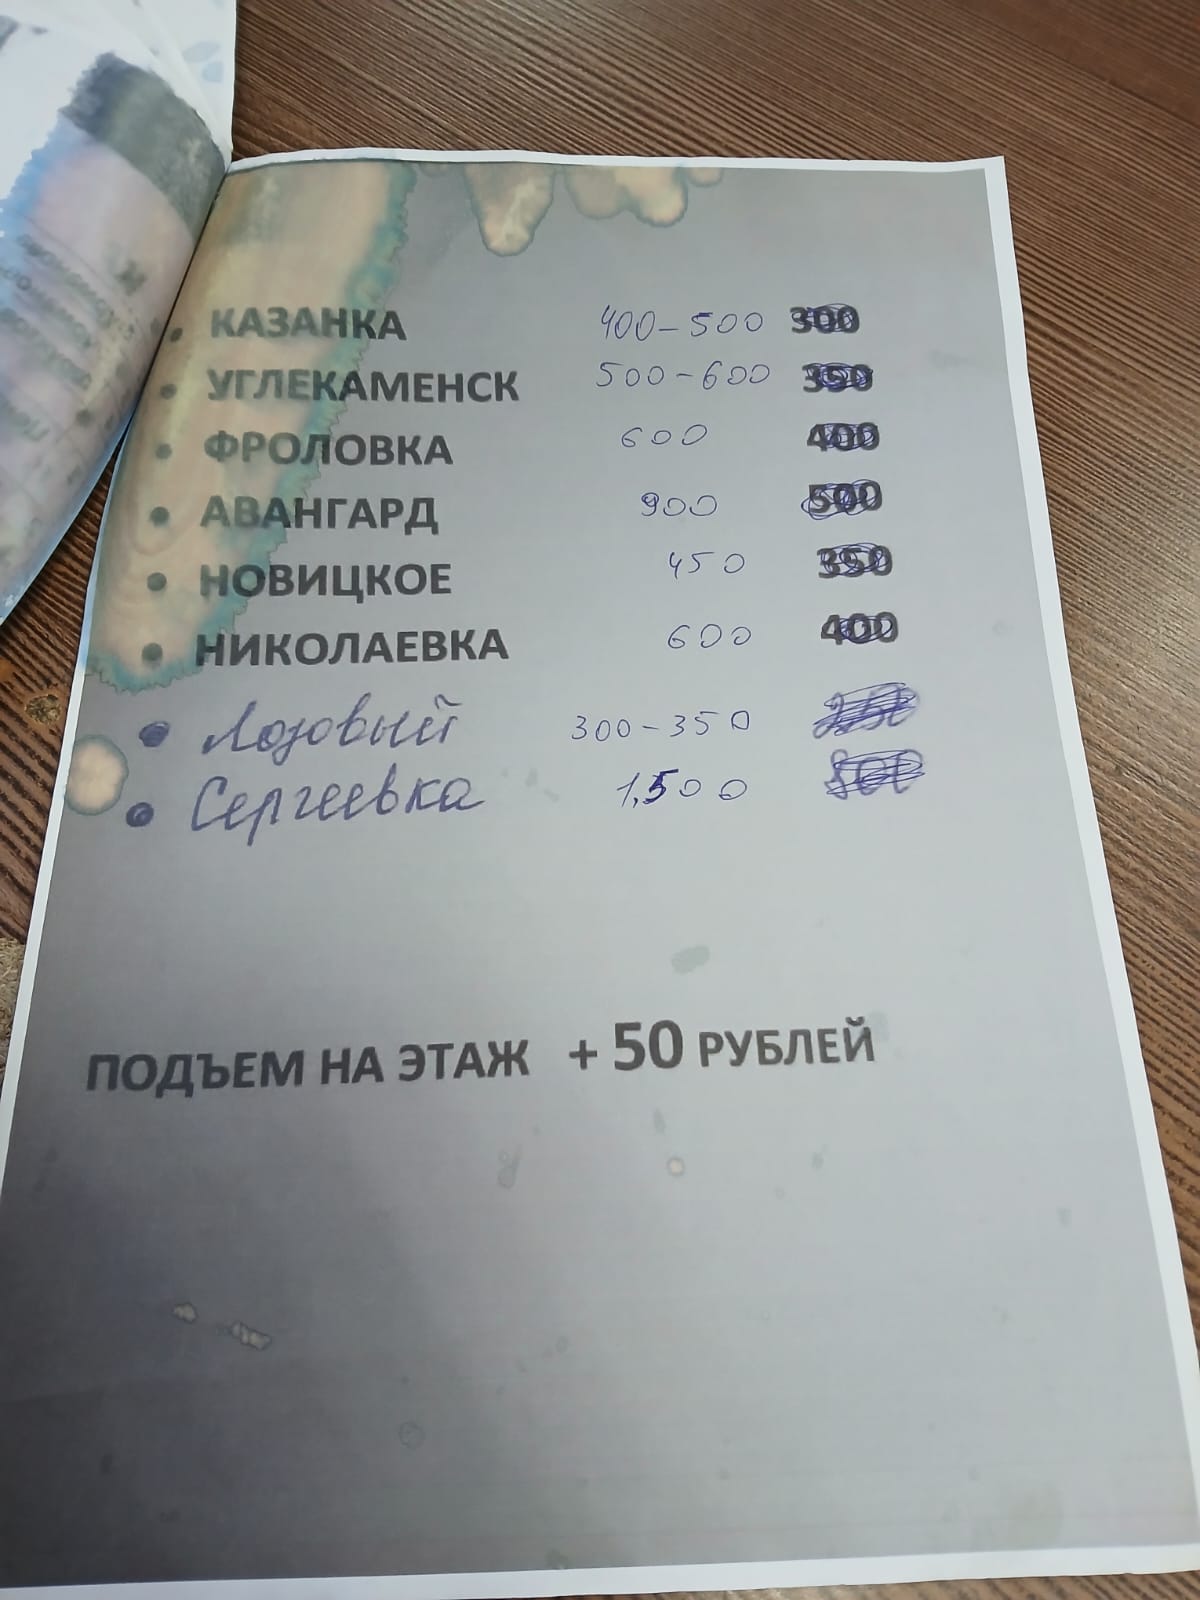 • КАЗАНКА 400-500 300
• УГЛЕКАМЕНСК 500-600 350
• ФРОЛОВКА 600 400
• АВАНГАРД 900 500
• НОВИЦКОЕ 450 350
• НИКОЛАЕВКА 600 400
• Лозовый 300-350
• Сергеевка 1,500
ПОДЪЕМ НА ЭТАЖ + 50 РУБЛЕЙ